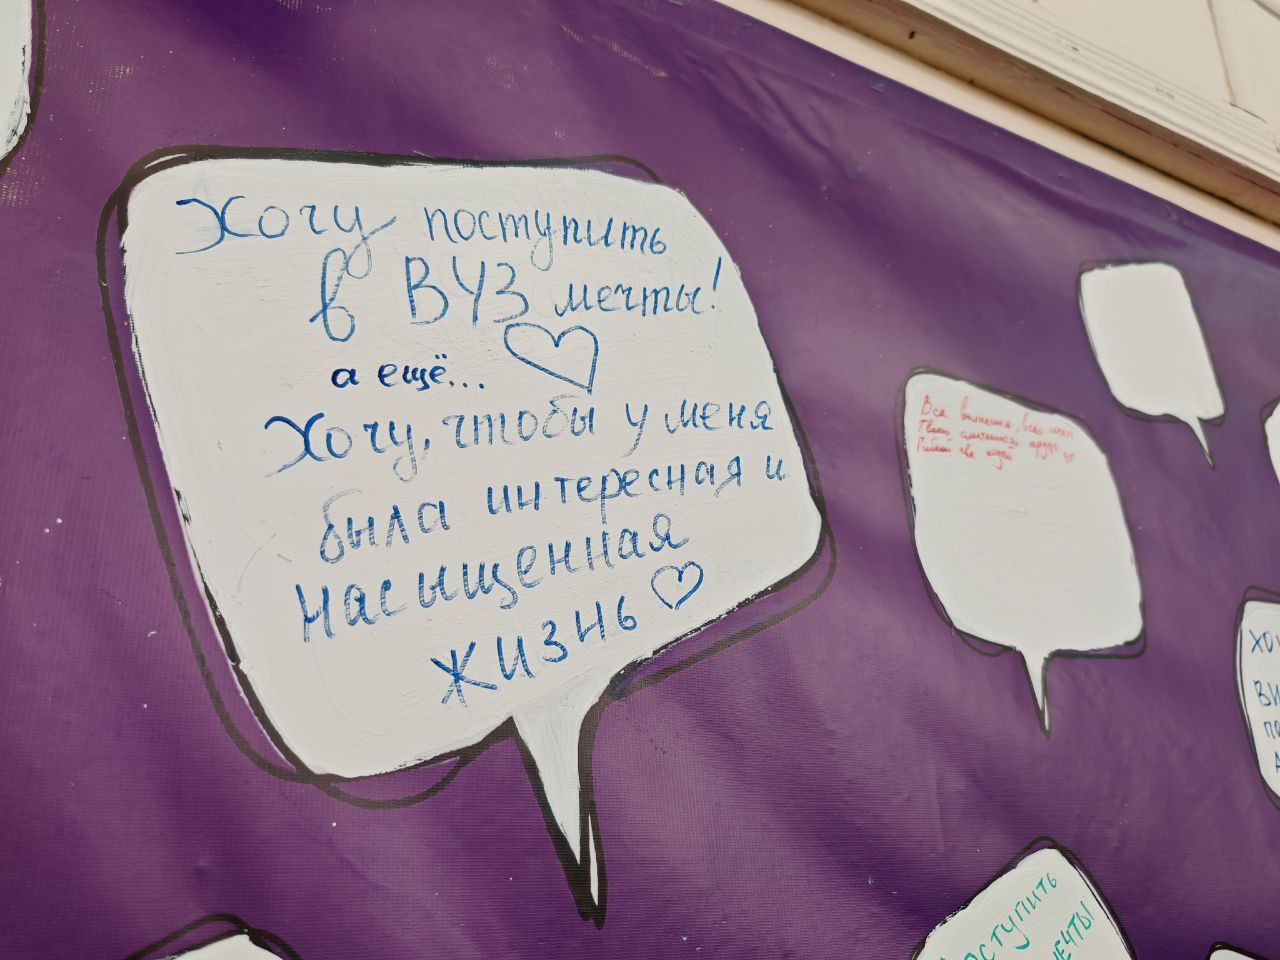 Хочу поступить
в ВУЗ мечты!
а ещё...
Хочу, чтобы у меня
была интересная и
насыщенная
жизнь
Вся
Твоей
поступить
мечты